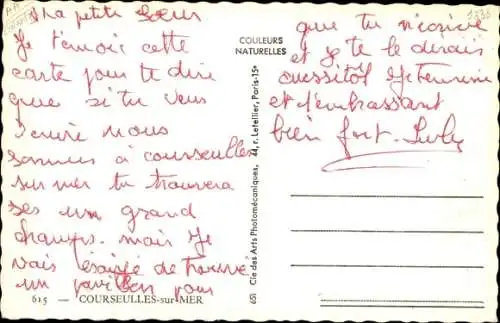 Ma petite Soeur
Je t'envoie cette
carte pour te dire
que si tu veus
m'ecrire nous
sommes à courseulles
sur mer tu trouvera
ses un grand
champs. mais Je
vais essaiyé de trouvé
un pavillon pour
615 — COURSEULLES-sur-MER
COULEURS
NATURELLES
651 Cie des Arts Photomécaniques, 44, r. Letellier, Paris-15e
que tu m'écrive
et je te le dirais
aussitot Je termine
et t'embrassant
bien fort.